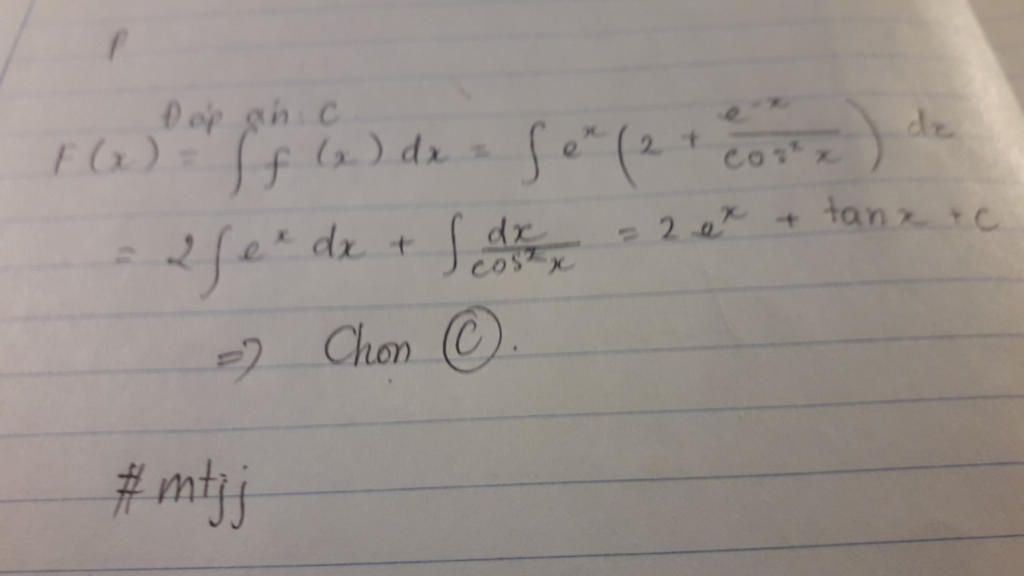 P
Đáp án: C
F(x) = ∫ f(x) dx = ∫ eˣ (2 + e⁻ˣ / cos² x) dx
= 2 ∫ eˣ dx + ∫ dx / cos² x = 2 eˣ + tan x + C
=> Chọn Ⓒ.
# mtjj